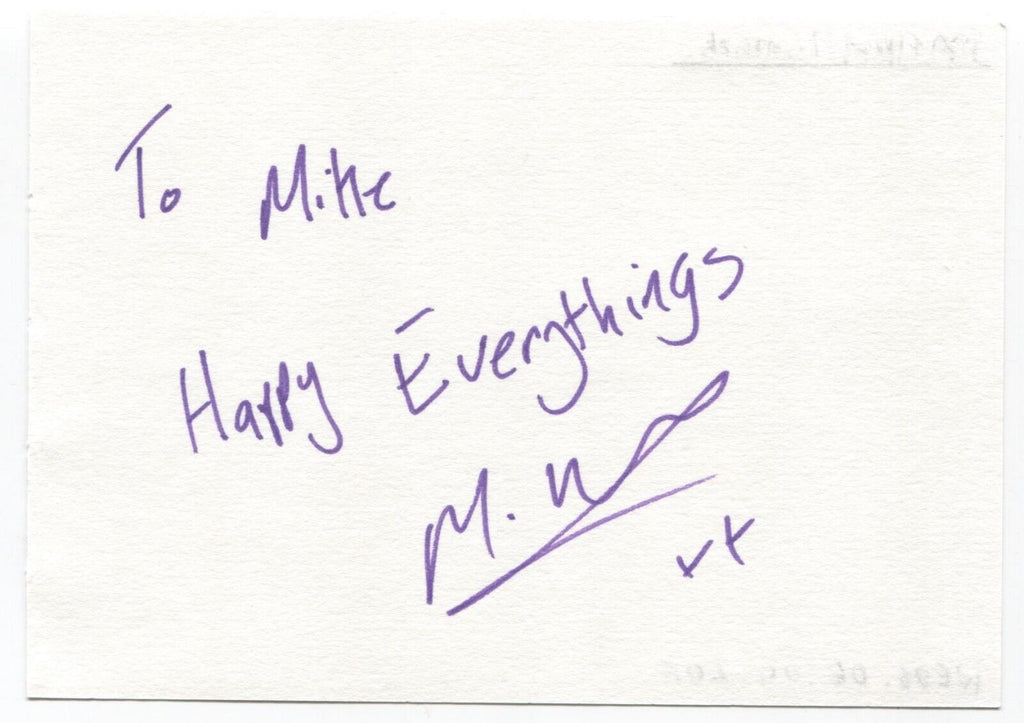 To Mike
Happy Everythings
M.
xx